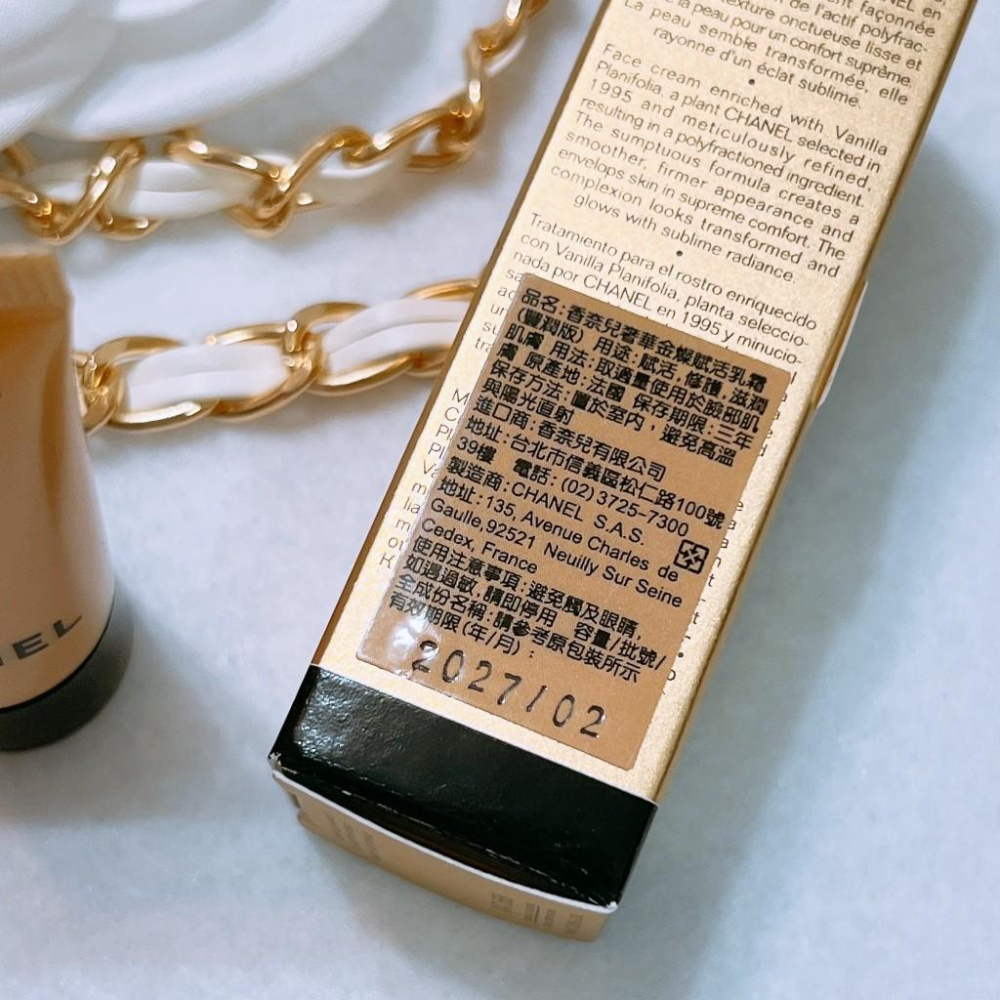 CHANEL en
façonnée
de l'actif polyfrac-
texture onctueuse lisse et
la peau pour un confort suprême.
La peau semble transformée, elle
rayonne d'un éclat sublime.
•
Face cream enriched with Vanilla
Planifolia, a plant CHANEL selected in
1995 and meticulously refined,
resulting in a polyfractioned ingredient.
The sumptuous formula creates a
smoother, firmer appearance and
envelops skin in supreme comfort. The
complexion looks transformed and
glows with sublime radiance.
•
Tratamiento para el rostro enriquecido
con Vanilla Planifolia, planta seleccio-
nada por CHANEL en 1995 y minucio-
品名:香奈兒奢華金燦賦活乳霜
(豐潤版) 用途:賦活,修護,滋潤
肌膚 用法:取適量使用於臉部肌
膚 原產地:法國 保存期限:三年
保存方法:置於室內,避免高溫
與陽光直射
進口商:香奈兒有限公司
地址:台北市信義區松仁路100號
39樓 電話:(02) 3725-7300
製造商:CHANEL S.A.S.
地址:135, Avenue Charles de
Gaulle,92521 Neuilly Sur Seine
Cedex, France
使用注意事項:避免觸及眼睛,
如遇過敏,請即停用 容量/批號/
全成份名稱:請參考原包裝所示
有效期限(年/月):
2027/02
NEL